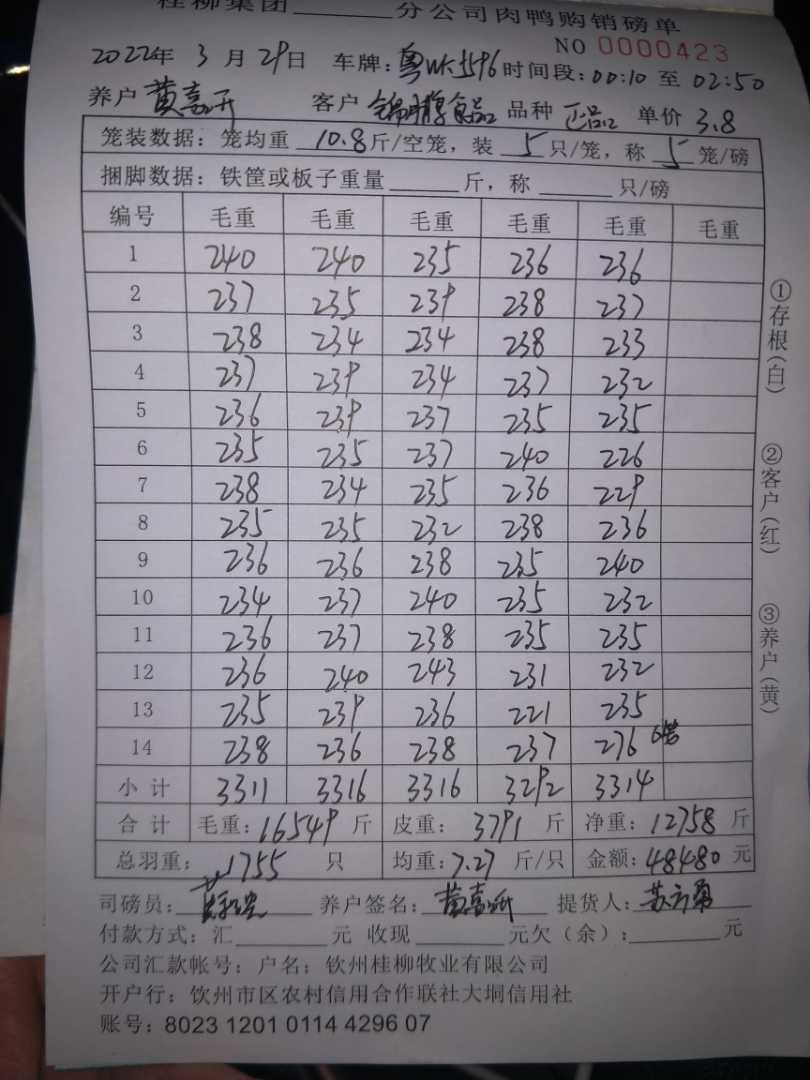 桂柳集团______分公司肉鸭购销磅单
NO 0000423
2022年 3 月 29日 车牌:粤WK5596 时间段:00:10 至 02:50
养户 黄嘉开 客户 食品 品种 正品 单价 3.8
笼装数据:笼均重 10.8斤/空笼,装 5 只/笼,称 5 笼/磅
捆脚数据:铁筐或板子重量______斤,称______只/磅
编号 毛重 毛重 毛重 毛重 毛重 毛重
1 240 240 235 236 236
2 237 235 239 238 237
3 238 234 234 238 233
4 237 239 234 237 232
5 236 239 237 235 235
6 235 235 237 240 226
7 238 234 235 236 229
8 235 235 232 238 236
9 236 236 238 235 240
10 234 237 240 235 232
11 236 237 238 235 235
12 236 240 243 231 232
13 235 239 236 221 235
14 238 236 238 237 276 6笼
小计 3311 3316 3316 3292 3314
合计 毛重:16549 斤 皮重:3791 斤 净重:12758 斤
总羽重:1755 只 均重:7.27 斤/只 金额:48480 元
司磅员: 养户签名:黄嘉开 提货人:苏方勇
付款方式:汇______元 收现______元欠(余):______元
公司汇款帐号:户名:钦州桂柳牧业有限公司
开户行:饮州市区农村信用合作联社大垌信用社
账号:8023 1201 0114 4296 07
①存根(白)
②客户(红)
③养户(黄)